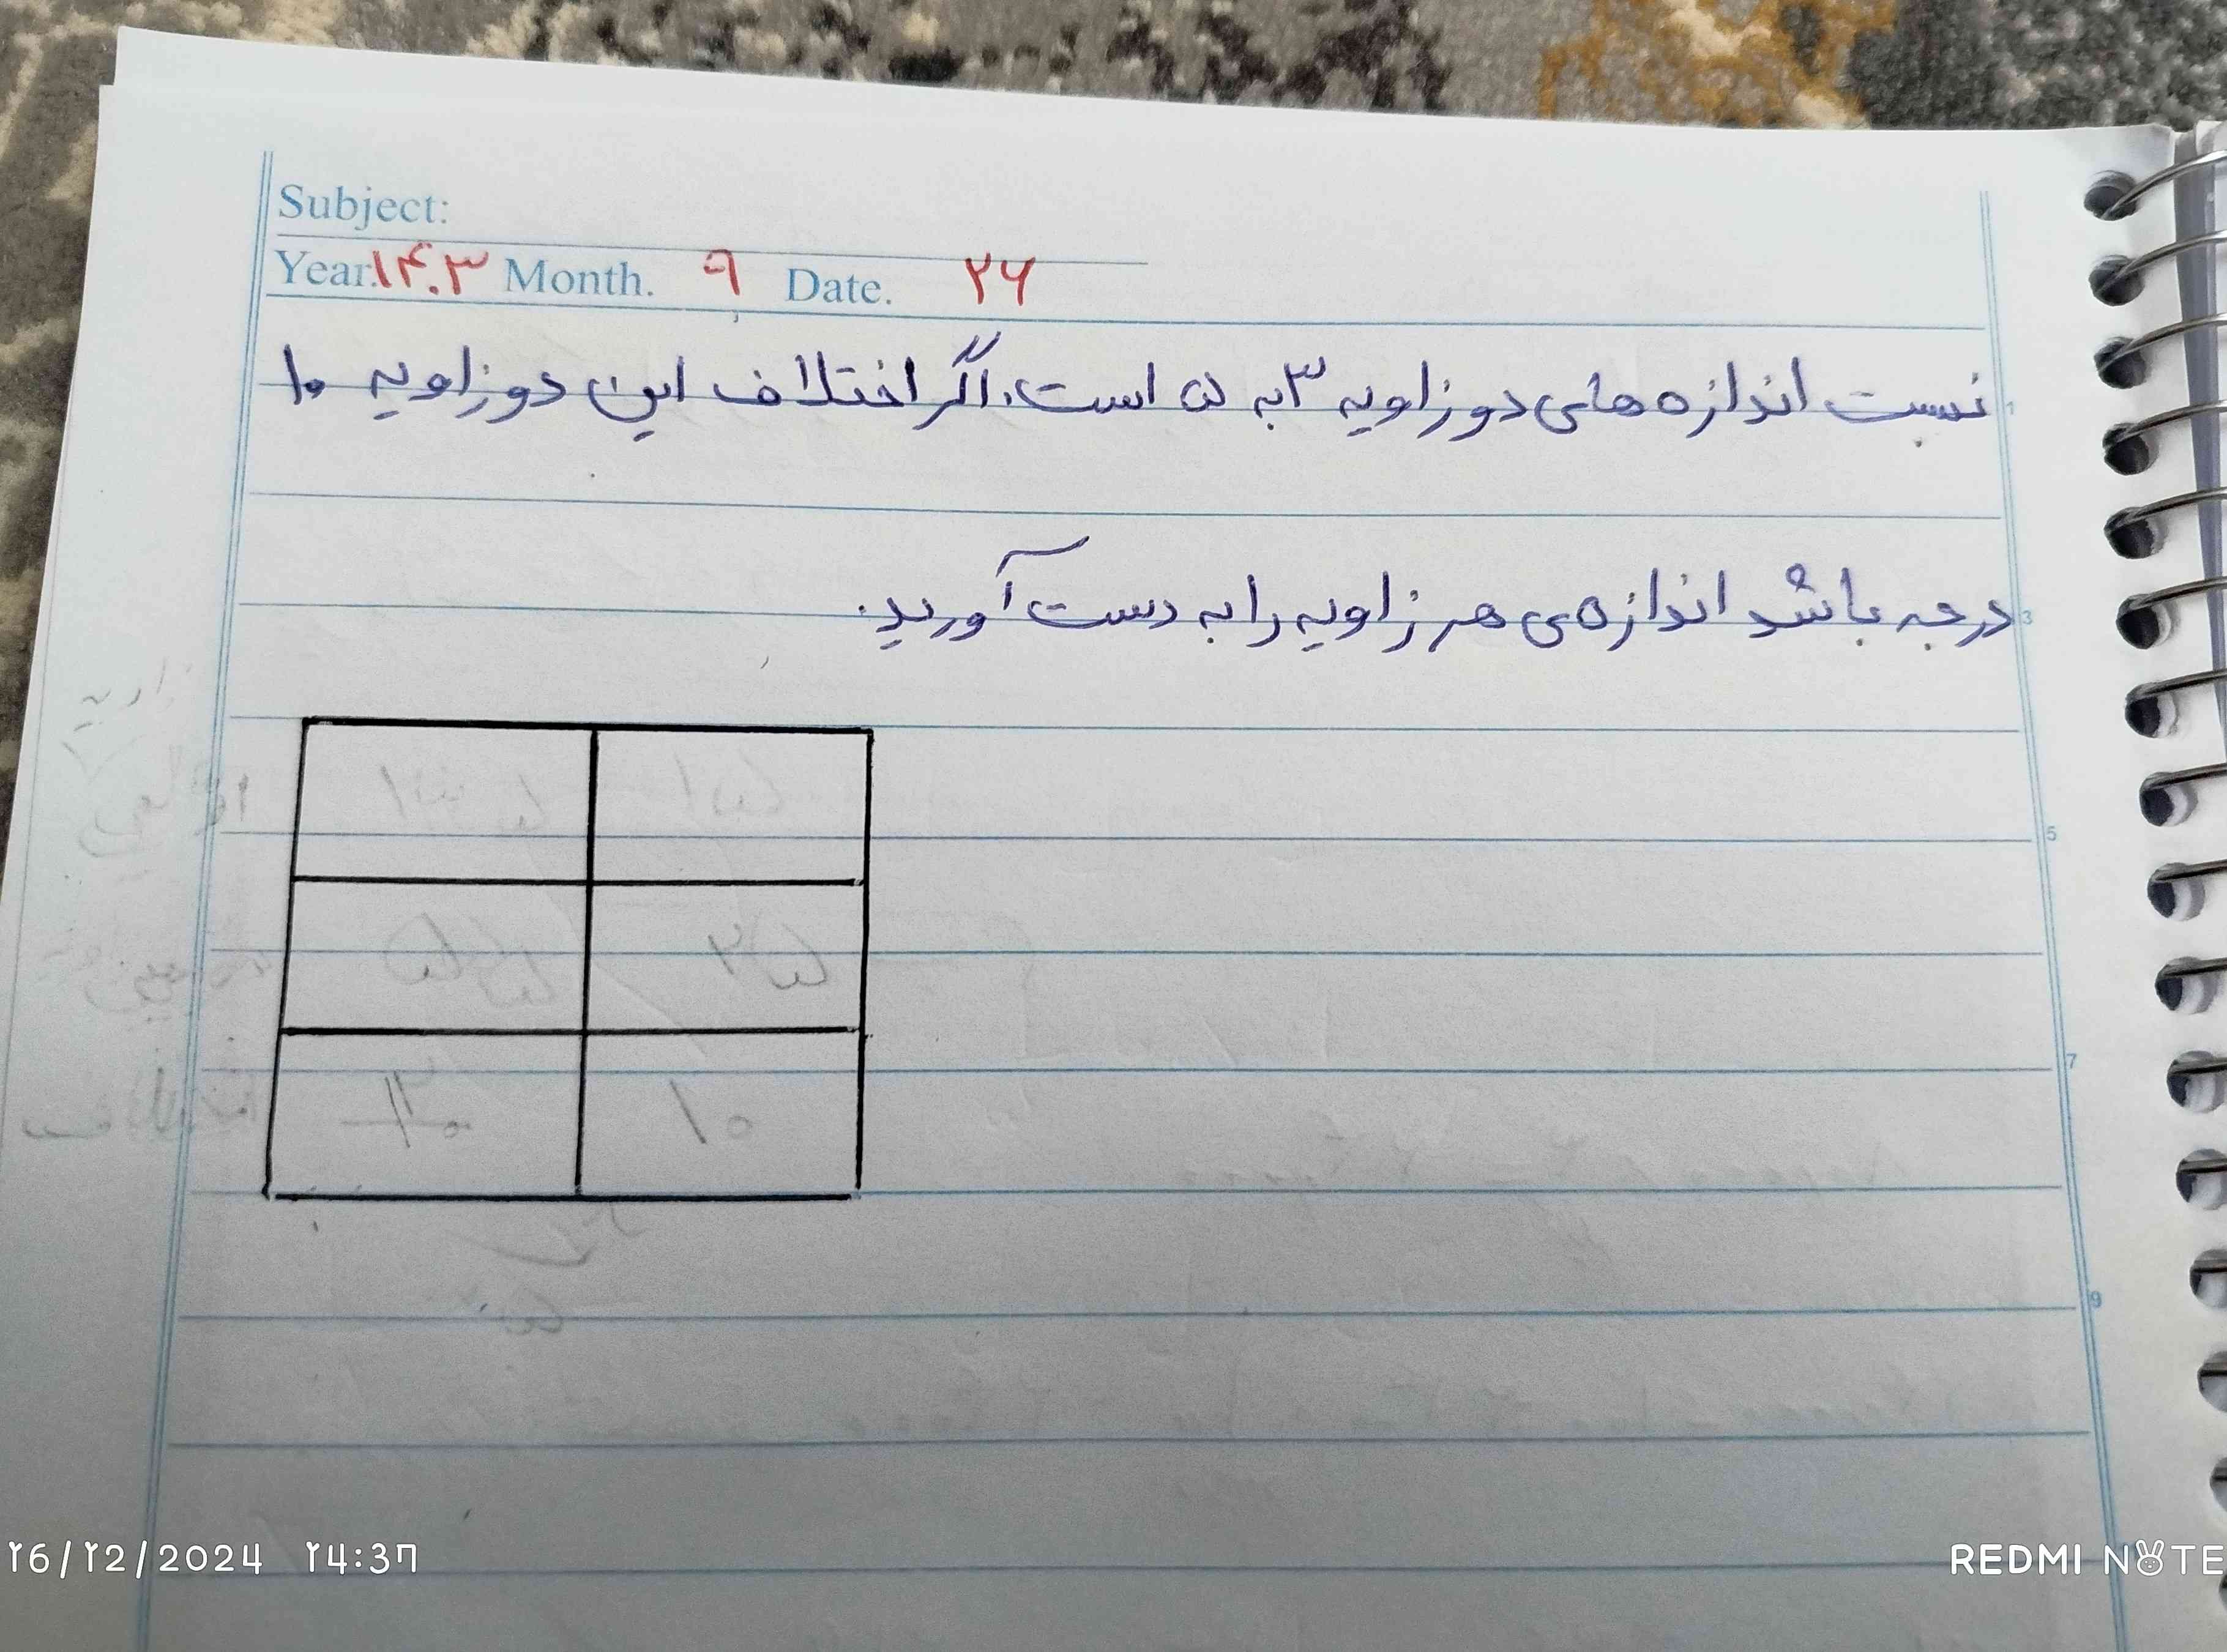 Subject:
Year. ۱۴۰۳ Month. ۹ Date. ۲۶
نسبت اندازه های دو زاویه ۳ به ۵ است. اگر اختلاف این دو زاویه ۱۰
درجه باشد اندازه ی هر زاویه را به دست آورید.
1
3
5
7
9
16/12/2024 14:37
REDMI NOTE